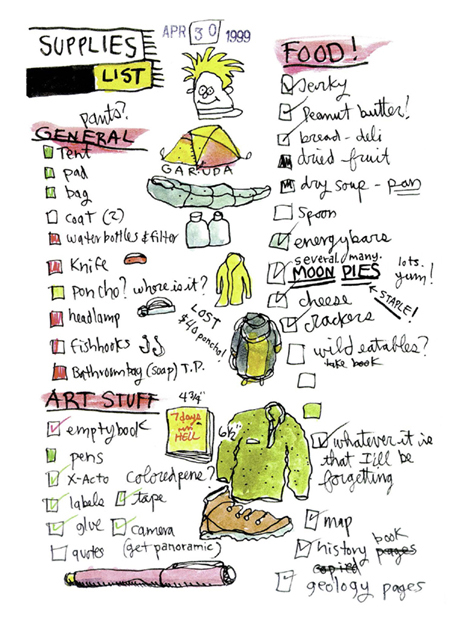 SUPPLIES
LIST
APR 30 1999
pants?
GENERAL
Tent
pad
bag
coat (2)
water bottles & filter
Knife
poncho? where is it?
headlamp
fishhooks
Bathroom bag (soap) T.P.
GARUDA
LOST
$40 poncho!
ART STUFF
empty book
pens
X-Acto
colored pens?
labels
tape
glue
camera
quotes
(get panoramic)
4 3/4"
7 days
in
HELL
6 1/2"
FOOD!
Jerky
Peanut butter!
bread - deli
dried - fruit
dry soup - pan
Spoon
energy bars
several many.
MOON PIES
lots.
yum!
STAPLE!
cheese
crackers
wild eatables?
take book
whatever it is
that I'll be
forgetting
map
book
history pages
copied
geology pages